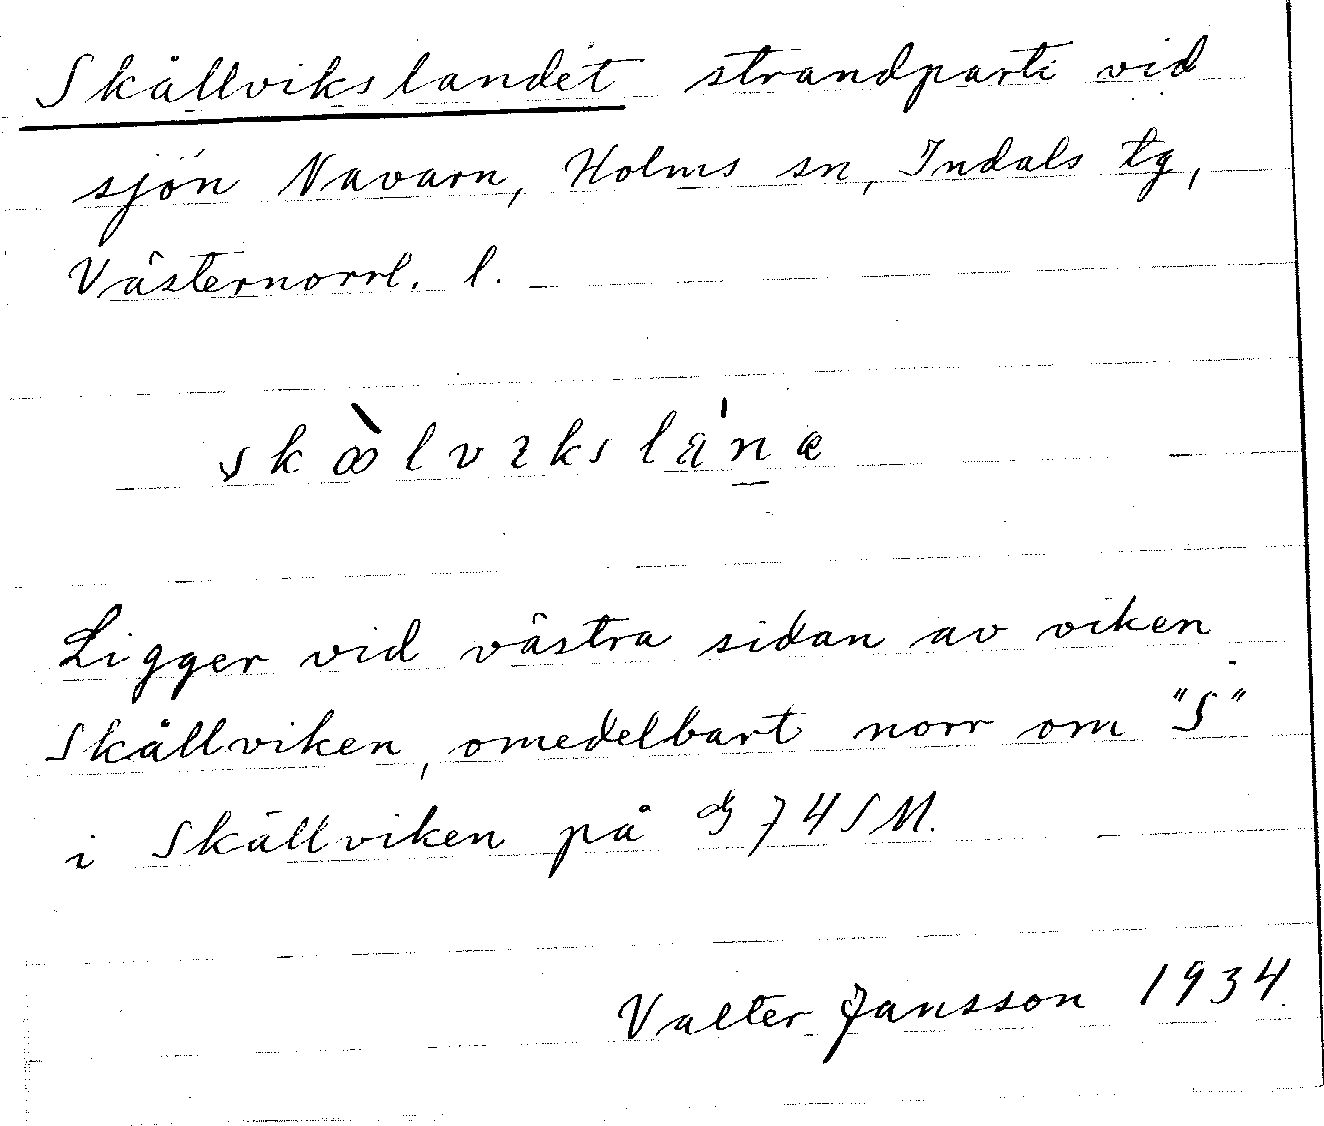 Skållvikslandet strandparti vid
sjön Navarn, Holms sn, Indals tg,
Västernorrl. l.
Ligger vid västra sidan av viken
Skållviken, omedelbart norr om "S"
i Skållviken på 74SM.
Valter Jansson 1934.